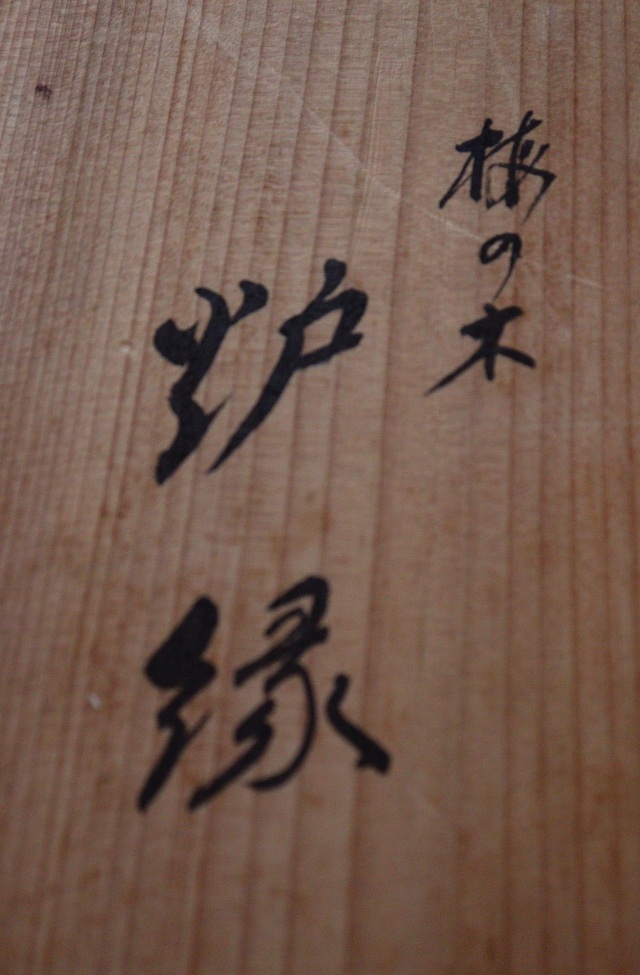 梅の木
炉縁